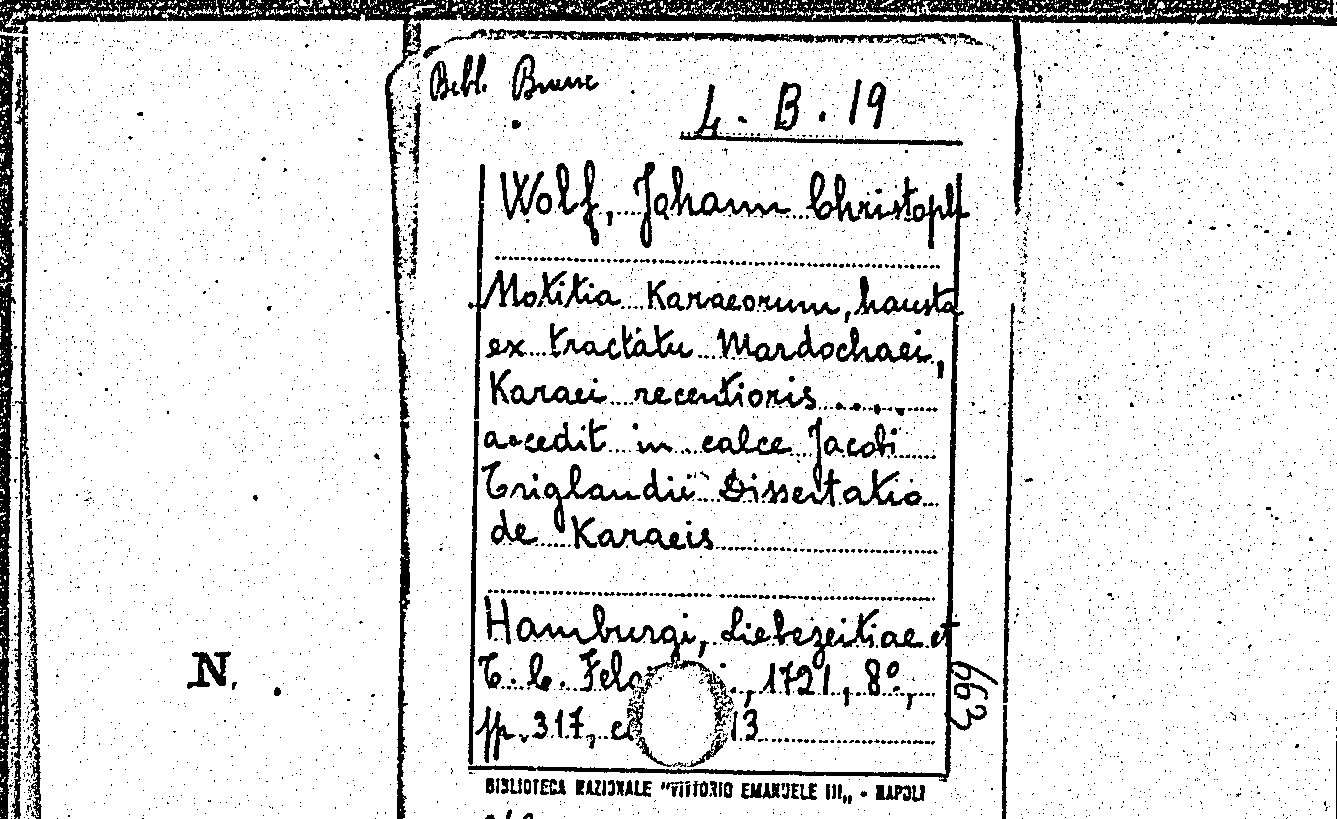 Bibl. Brunc
4. B. 19
Wolf, Johann Christoph
Notitia Karaeorum, hausta
ex tractatu Mardochaei,
Karaei recentioris ....
accedit in calce Jacobi
Triglandii Dissertatio
de Karaeis
Hamburgi, Liebezeitiae et
T. C. , 1721, 8°,
pp. 317, 13
663
N.
BIBLIOTECA NAZIONALE "VITTORIO EMANUELE III„ - NAPOLI